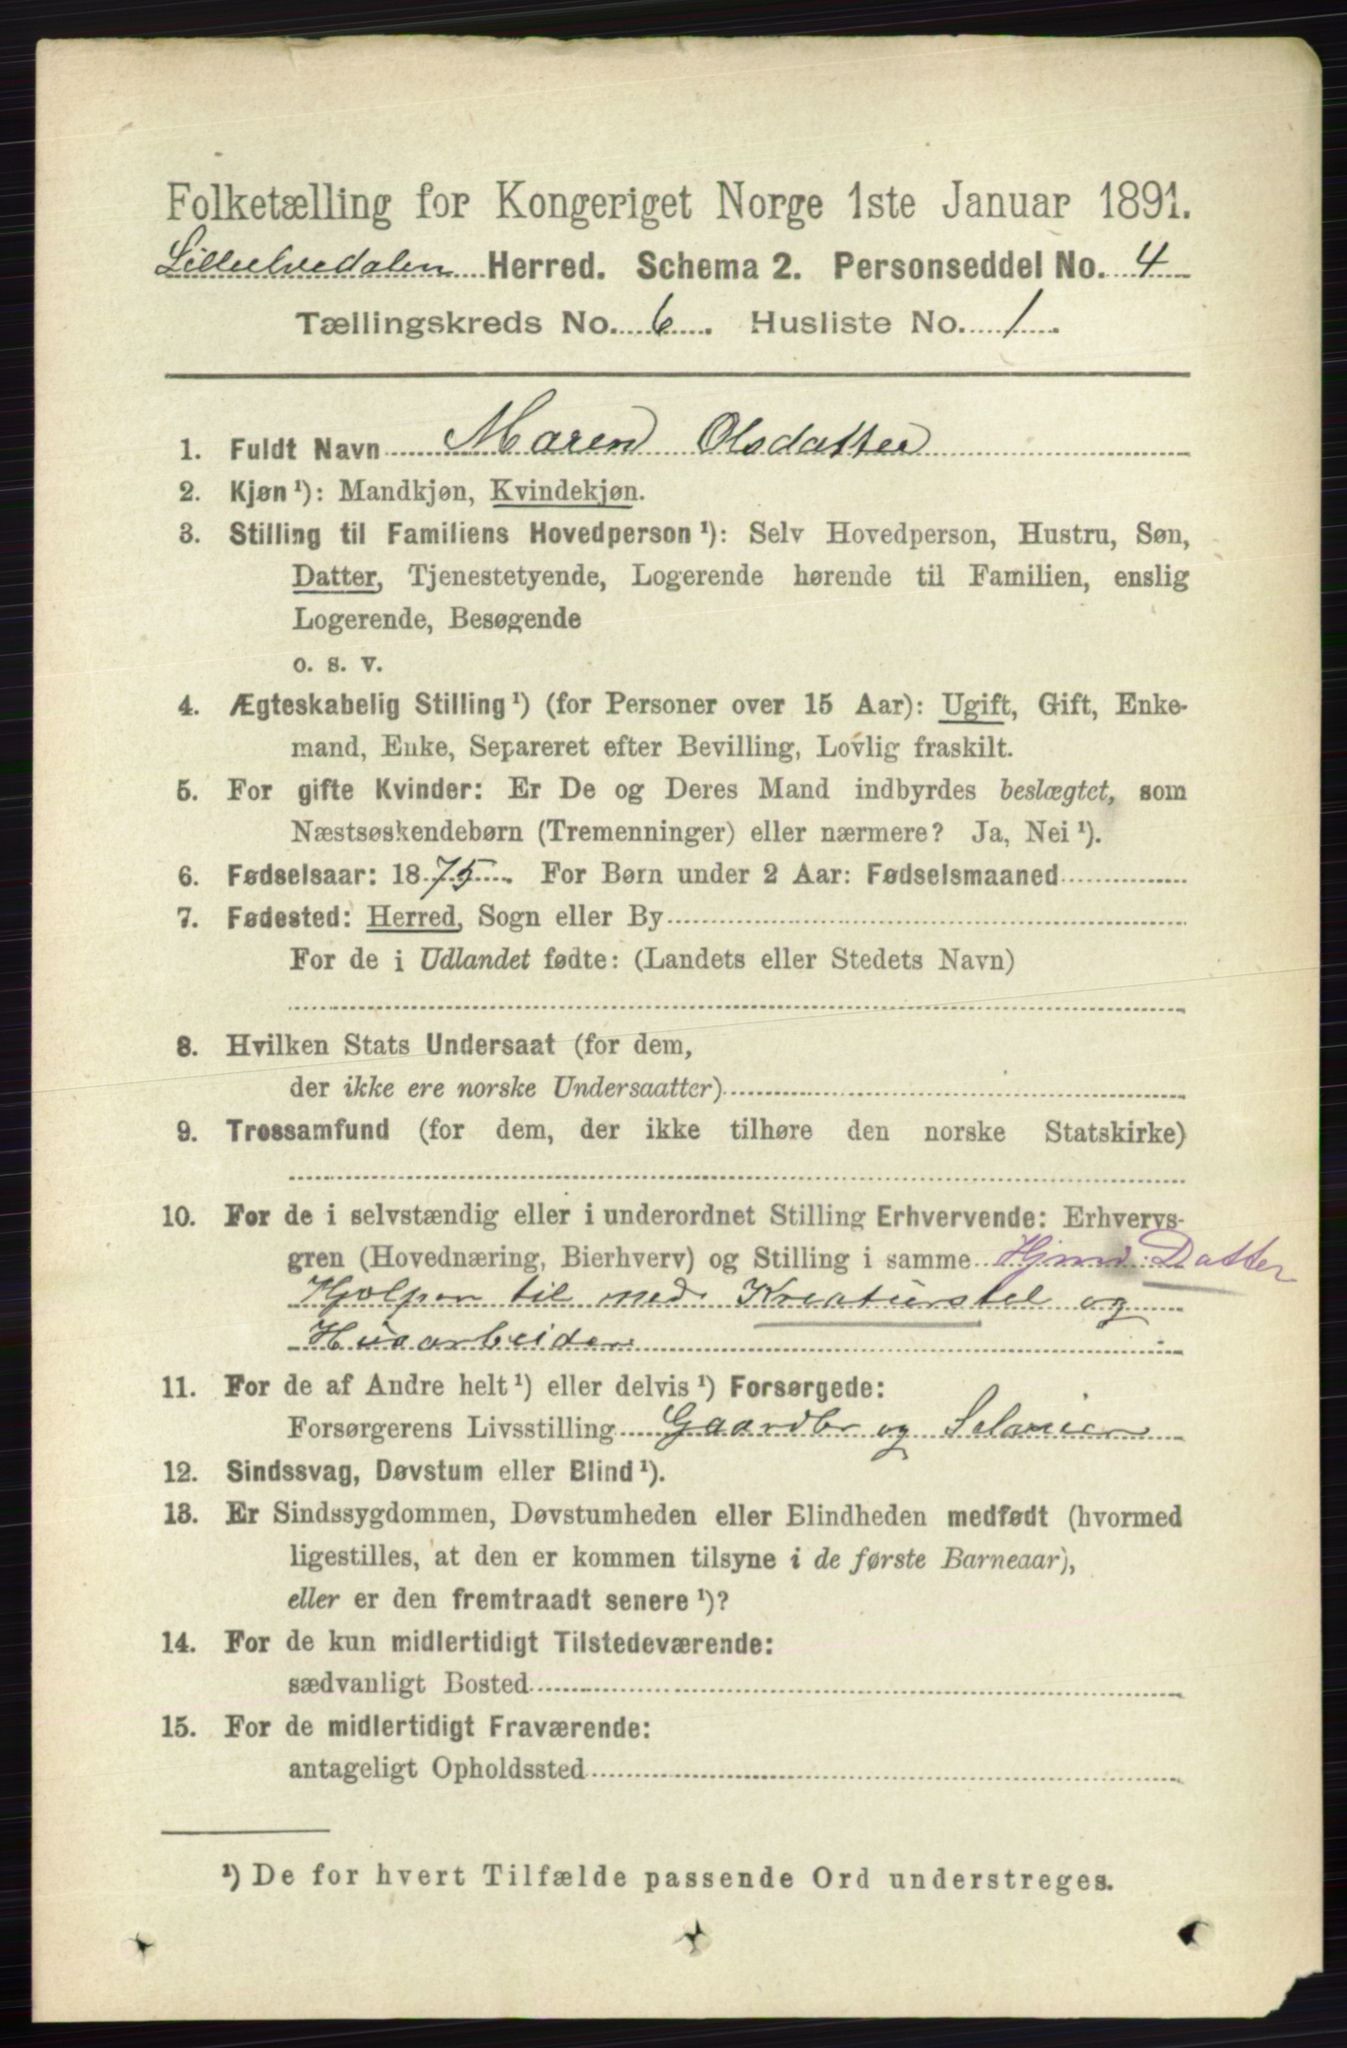 Folketælling for Kongeriget Norge 1ste Januar 1891.
Lilleelvedalen Herred. Schema 2. Personseddel No. 4
Tællingskreds No. 6. Husliste No. 1.
1. Fuldt Navn Maren Olsdatter
2. Kjøn ¹): Mandkjøn, Kvindekjøn.
3. Stilling til Familiens Hovedperson ¹): Selv Hovedperson, Hustru, Søn,
Datter, Tjenestetyende, Logerende hørende til Familien, enslig
Logerende, Besøgende
o. s. v.
4. Ægteskabelig Stilling ¹) (for Personer over 15 Aar): Ugift, Gift, Enke-
mand, Enke, Separeret efter Bevilling, Lovlig fraskilt.
5. For gifte Kvinder: Er De og Deres Mand indbyrdes beslægtet, som
Næstsøskendebørn (Tremenninger) eller nærmere? Ja, Nei ¹).
6. Fødselsaar: 1875. For Børn under 2 Aar: Fødselsmaaned
7. Fødested: Herred, Sogn eller By
For de i Udlandet fødte: (Landets eller Stedets Navn)
8. Hvilken Stats Undersaat (for dem,
der ikke ere norske Undersaatter)
9. Trossamfund (for dem, der ikke tilhøre den norske Statskirke)
10. For de i selvstændig eller i underordnet Stilling Erhvervende: Erhvervs-
gren (Hovednæring, Bierhverv) og Stilling i samme Datter
Hjelper til med Kreaturstel og
Husarbeider
11. For de af Andre helt ¹) eller delvis ¹) Forsørgede:
Forsørgerens Livsstilling Gaardbr og
12. Sindssvag, Døvstum eller Blind ¹).
13. Er Sindssygdommen, Døvstumheden eller Blindheden medfødt (hvormed
ligestilles, at den er kommen tilsyne i de første Barneaar),
eller er den fremtraadt senere ¹)?
14. For de kun midlertidigt Tilstedeværende:
sædvanligt Bosted
15. For de midlertidigt Fraværende:
antageligt Opholdssted
¹) De for hvert Tilfælde passende Ord understreges.